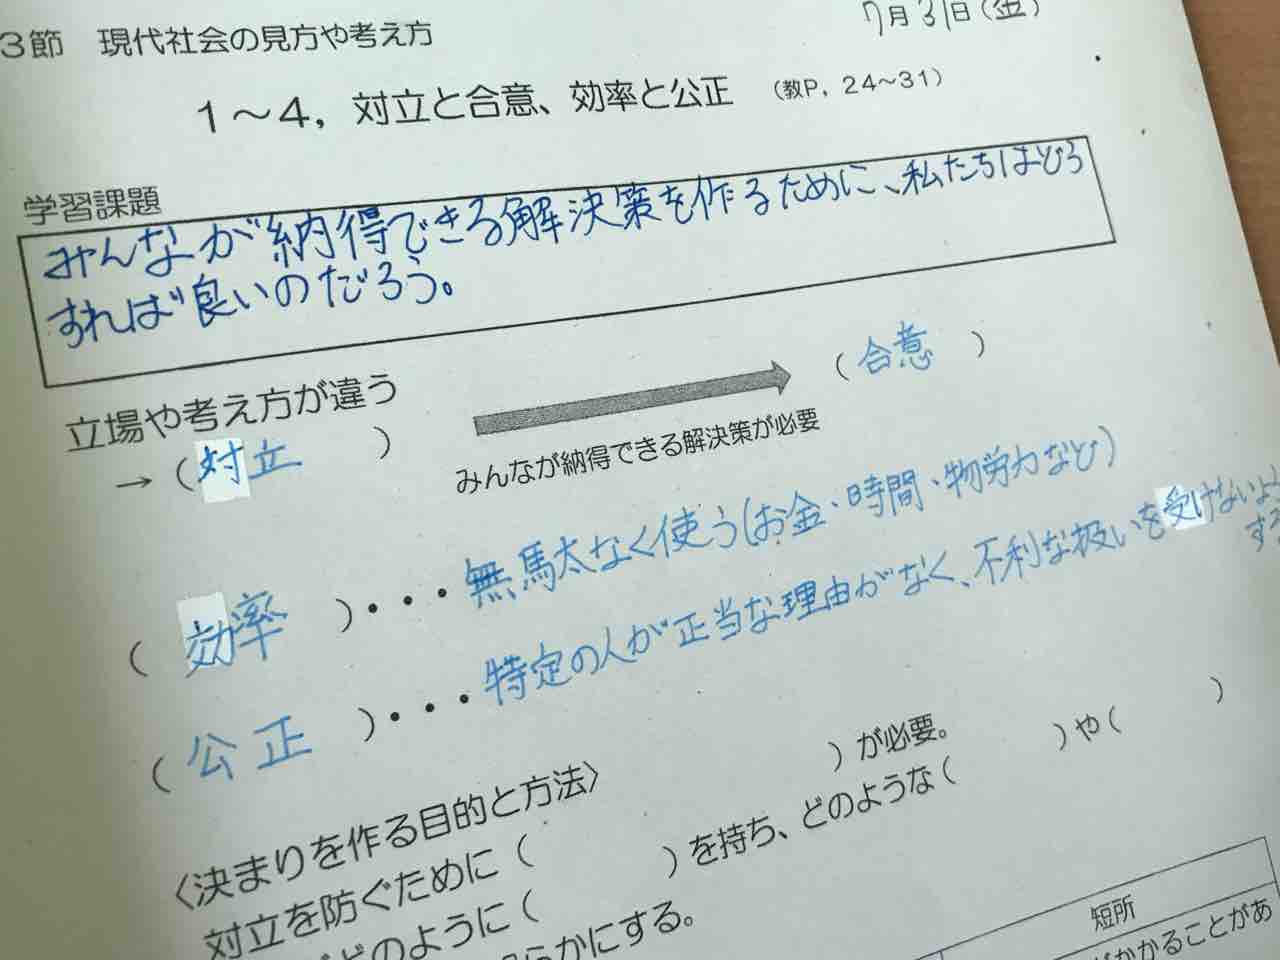 3節　現代社会の見方や考え方
7月31日(金)
1〜4，対立と合意、効率と公正　(教P，24〜31)
学習課題
みんなが納得できる解決策を作るために、私たちはどう
すれば良いのだろう。
立場や考え方が違う
→（対立　）
みんなが納得できる解決策が必要
（合意　）
（効率　）・・・無馬太なく使う(お金・時間・物労力など)
（公正　）・・・特定の人が正当な理由がなく、不利な扱いを受けないよ
す
〈決まりを作る目的と方法〉
対立を防ぐために（　　　）が必要。
どのように（　　　）を持ち、どのような（　　　）や（　　　）
らかにする。
短所
かかることがあ